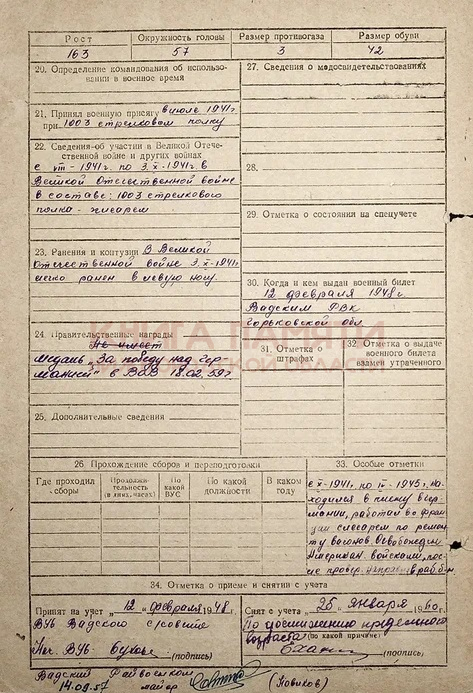 Рост Окружность головы Размер противогаза Размер обуви
163 57 3 42
20. Определение командования об использовании в военное время
21. Принял военную присягу в июле 1941г
при 1003 стрелковом полку
22. Сведения об участии в Великой Отечественной войне и других войнах
с VIII-1941г. по 3.X-1941г. в
Великой Отечественной войне
в составе: 1003 стрелкового
полка -
23. Ранения и контузии В Великой
Отечественной войне 3.X-1941г.
легко ранен в левую ногу.
24. Правительственные награды
Не имеет
медаль „За победу над Германией" 18.02.59г
25. Дополнительные сведения
27. Сведения о медосвидетельствованиях
28.
29. Отметка о состоянии на спецучете
30. Когда и кем выдан военный билет
12 февраля 1948г.
Вадским РВК
Горьковской обл.
31. Отметка о штрафах
32. Отметка о выдаче военного билета взамен утраченного
КНИГА ПАМЯТИ
26 Прохождение сборов и переподготовки
Где проходил сборы
Продолжительность (в днях, часах)
По какой ВУС
По какой должности
В каком году
33. Особые отметки
с X-1941г. по IV-1945г. находился в плену в Германии, работал во Франции слесарем по ремонту вагонов. Освобожден
войсками,
34. Отметка о приеме и снятии с учета
Принят на учет „12" февраля 1948г.
ВУБ Вадского
Нач. ВУБ
(подпись)
Снят с учета „25" января 1960г.
По достижению предельного
возраста (по какой причине)
(подпись)
Вадский Райвоенком
14.09.57 майор (Новиков)